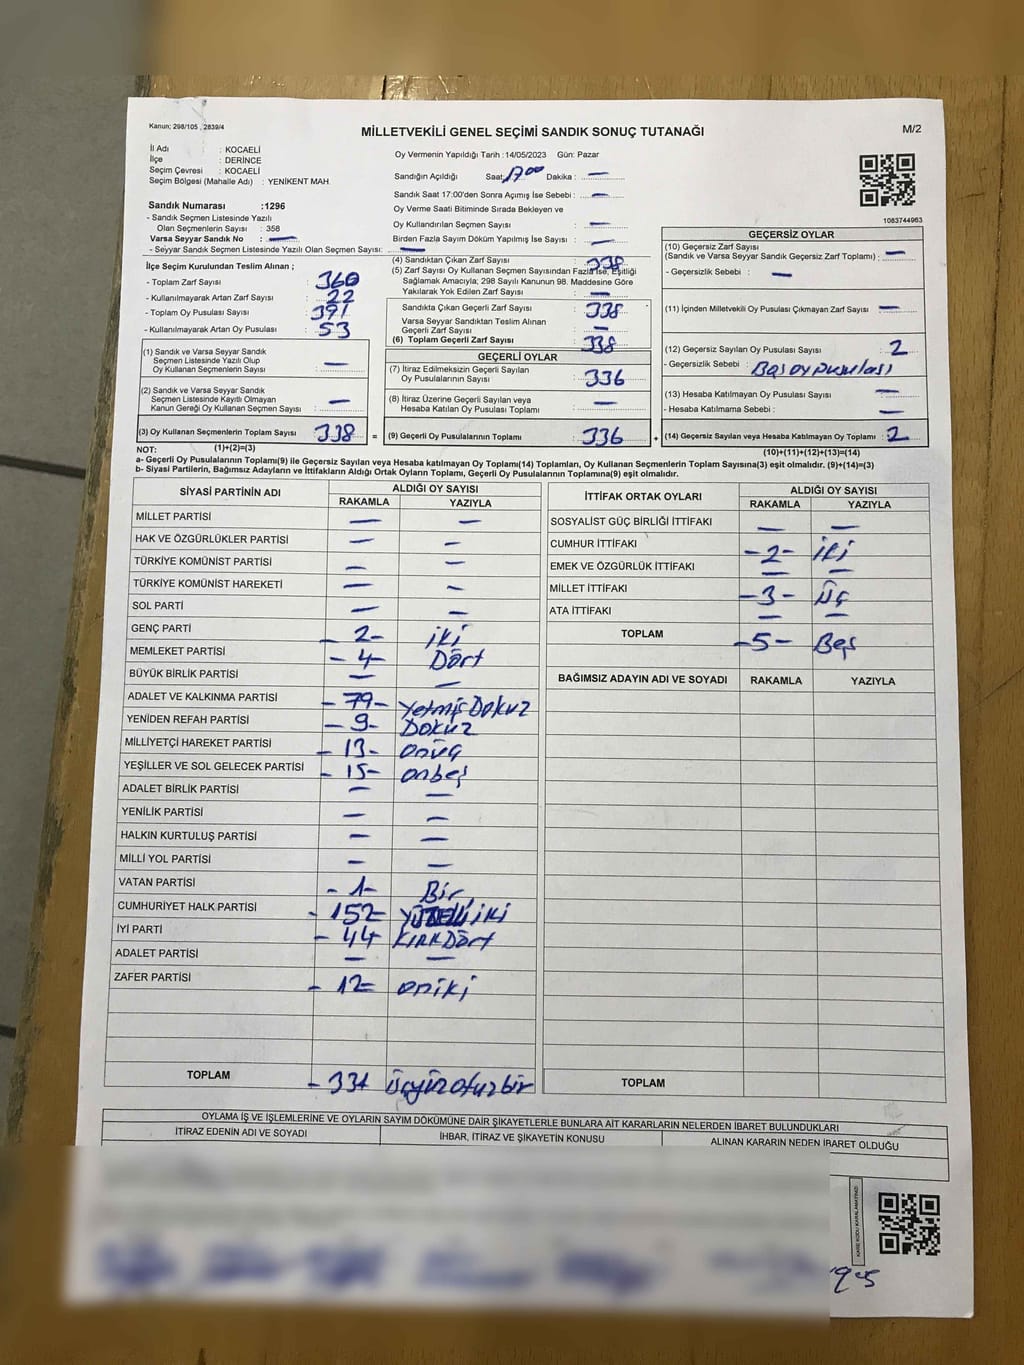 Kanun; 298/105 , 2839/4
MİLLETVEKİLİ GENEL SEÇİMİ SANDIK SONUÇ TUTANAĞI
M/2
İl Adı : KOCAELİ
İlçe : DERİNCE
Seçim Çevresi : KOCAELİ
Seçim Bölgesi (Mahalle Adı) : YENİKENT MAH.
Sandık Numarası :1296
- Sandık Seçmen Listesinde Yazılı
Olan Seçmenlerin Sayısı : 358
Varsa Seyyar Sandık No : —
- Seyyar Sandık Seçmen Listesinde Yazılı Olan Seçmen Sayısı: —
İlçe Seçim Kurulundan Teslim Alınan ;
- Toplam Zarf Sayısı : 360
- Kullanılmayarak Artan Zarf Sayısı : 22
- Toplam Oy Pusulası Sayısı : 391
- Kullanılmayarak Artan Oy Pusulası : 53
(1) Sandık ve Varsa Seyyar Sandık
Seçmen Listesinde Yazılı Olup
Oy Kullanan Seçmenlerin Sayısı : —
(2) Sandık ve Varsa Seyyar Sandık
Seçmen Listesinde Kayıtlı Olmayan
Kanun Gereği Oy Kullanan Seçmen Sayısı : —
(3) Oy Kullanan Seçmenlerin Toplam Sayısı : 338 =
(1)+(2)=(3)
Oy Vermenin Yapıldığı Tarih :14/05/2023 Gün: Pazar
Sandığın Açıldığı Saat: 17 00 Dakika : —
Sandık Saat 17:00'den Sonra Açımış İse Sebebi : —
Oy Verme Saati Bitiminde Sırada Bekleyen ve
Oy Kullandırılan Seçmen Sayısı : —
Birden Fazla Sayım Döküm Yapılmış İse Sayısı : —
(4) Sandıktan Çıkan Zarf Sayısı : 338
(5) Zarf Sayısı Oy Kullanan Seçmen Sayısından Fazla İse, Eşitliği
Sağlamak Amacıyla; 298 Sayılı Kanunun 98. Maddesine Göre
Yakılarak Yok Edilen Zarf Sayısı : —
Sandıkta Çıkan Geçerli Zarf Sayısı : 338
Varsa Seyyar Sandıktan Teslim Alınan
Geçerli Zarf Sayısı : —
(6) Toplam Geçerli Zarf Sayısı : 338
GEÇERLİ OYLAR
(7) İtiraz Edilmeksizin Geçerli Sayılan
Oy Pusulalarının Sayısı : 336
(8) İtiraz Üzerine Geçerli Sayılan veya
Hesaba Katılan Oy Pusulası Toplamı : —
(9) Geçerli Oy Pusulalarının Toplamı : 336 +
1083744963
GEÇERSİZ OYLAR
(10) Geçersiz Zarf Sayısı
(Sandık ve Varsa Seyyar Sandık Geçersiz Zarf Toplamı) : —
- Geçersizlik Sebebi : —
(11) İçinden Milletvekili Oy Pusulası Çıkmayan Zarf Sayısı : —
(12) Geçersiz Sayılan Oy Pusulası Sayısı : 2
- Geçersizlik Sebebi : Boş oy pusulası
(13) Hesaba Katılmayan Oy Pusulası Sayısı : —
- Hesaba Katılmama Sebebi : —
(14) Geçersiz Sayılan veya Hesaba Katılmayan Oy Toplamı : 2
(10)+(11)+(12)+(13)=(14)
NOT:
a- Geçerli Oy Pusulalarının Toplamı(9) ile Geçersiz Sayılan veya Hesaba katılmayan Oy Toplamı(14) Toplamları, Oy Kullanan Seçmenlerin Toplam Sayısına(3) eşit olmalıdır. (9)+(14)=(3)
b- Siyasi Partilerin, Bağımsız Adayların ve İttifakların Aldığı Ortak Oyların Toplamı, Geçerli Oy Pusulalarının Toplamına(9) eşit olmalıdır.
SİYASİ PARTİNİN ADI
ALDIĞI OY SAYISI
RAKAMLA YAZIYLA
MİLLET PARTİSİ — —
HAK VE ÖZGÜRLÜKLER PARTİSİ — —
TÜRKİYE KOMÜNİST PARTİSİ — —
TÜRKİYE KOMÜNİST HAREKETİ — —
SOL PARTİ — —
GENÇ PARTİ -2- iki
MEMLEKET PARTİSİ -4- Dört
BÜYÜK BİRLİK PARTİSİ — —
ADALET VE KALKINMA PARTİSİ -79- YetmişDokuz
YENİDEN REFAH PARTİSİ -9- Dokuz
MİLLİYETÇİ HAREKET PARTİSİ -13- onüç
YEŞİLLER VE SOL GELECEK PARTİSİ -15- onbeş
ADALET BİRLİK PARTİSİ — —
YENİLİK PARTİSİ — —
HALKIN KURTULUŞ PARTİSİ — —
MİLLİ YOL PARTİSİ — —
VATAN PARTİSİ -1- Bir
CUMHURİYET HALK PARTİSİ -152- YÜZELLİ iki
İYİ PARTİ -44- KırkDört
ADALET PARTİSİ — —
ZAFER PARTİSİ -12- oniki
TOPLAM -331 üçyüzotuzbir
İTTİFAK ORTAK OYLARI
ALDIĞI OY SAYISI
RAKAMLA YAZIYLA
SOSYALİST GÜÇ BİRLİĞİ İTTİFAKI — —
CUMHUR İTTİFAKI -2- iki
EMEK VE ÖZGÜRLÜK İTTİFAKI — —
MİLLET İTTİFAKI -3- Üç
ATA İTTİFAKI — —
TOPLAM -5- Beş
BAĞIMSIZ ADAYIN ADI VE SOYADI RAKAMLA YAZIYLA
TOPLAM
OYLAMA İŞ VE İŞLEMLERİNE VE OYLARIN SAYIM DÖKÜMÜNE DAİR ŞİKAYETLERLE BUNLARA AİT KARARLARIN NELERDEN İBARET BULUNDUKLARI
İTİRAZ EDENİN ADI VE SOYADI
İHBAR, İTİRAZ VE ŞİKAYETİN KONUSU
ALINAN KARARIN NEDEN İBARET OLDUĞU
KARE KODU KARALAMAYINIZ!